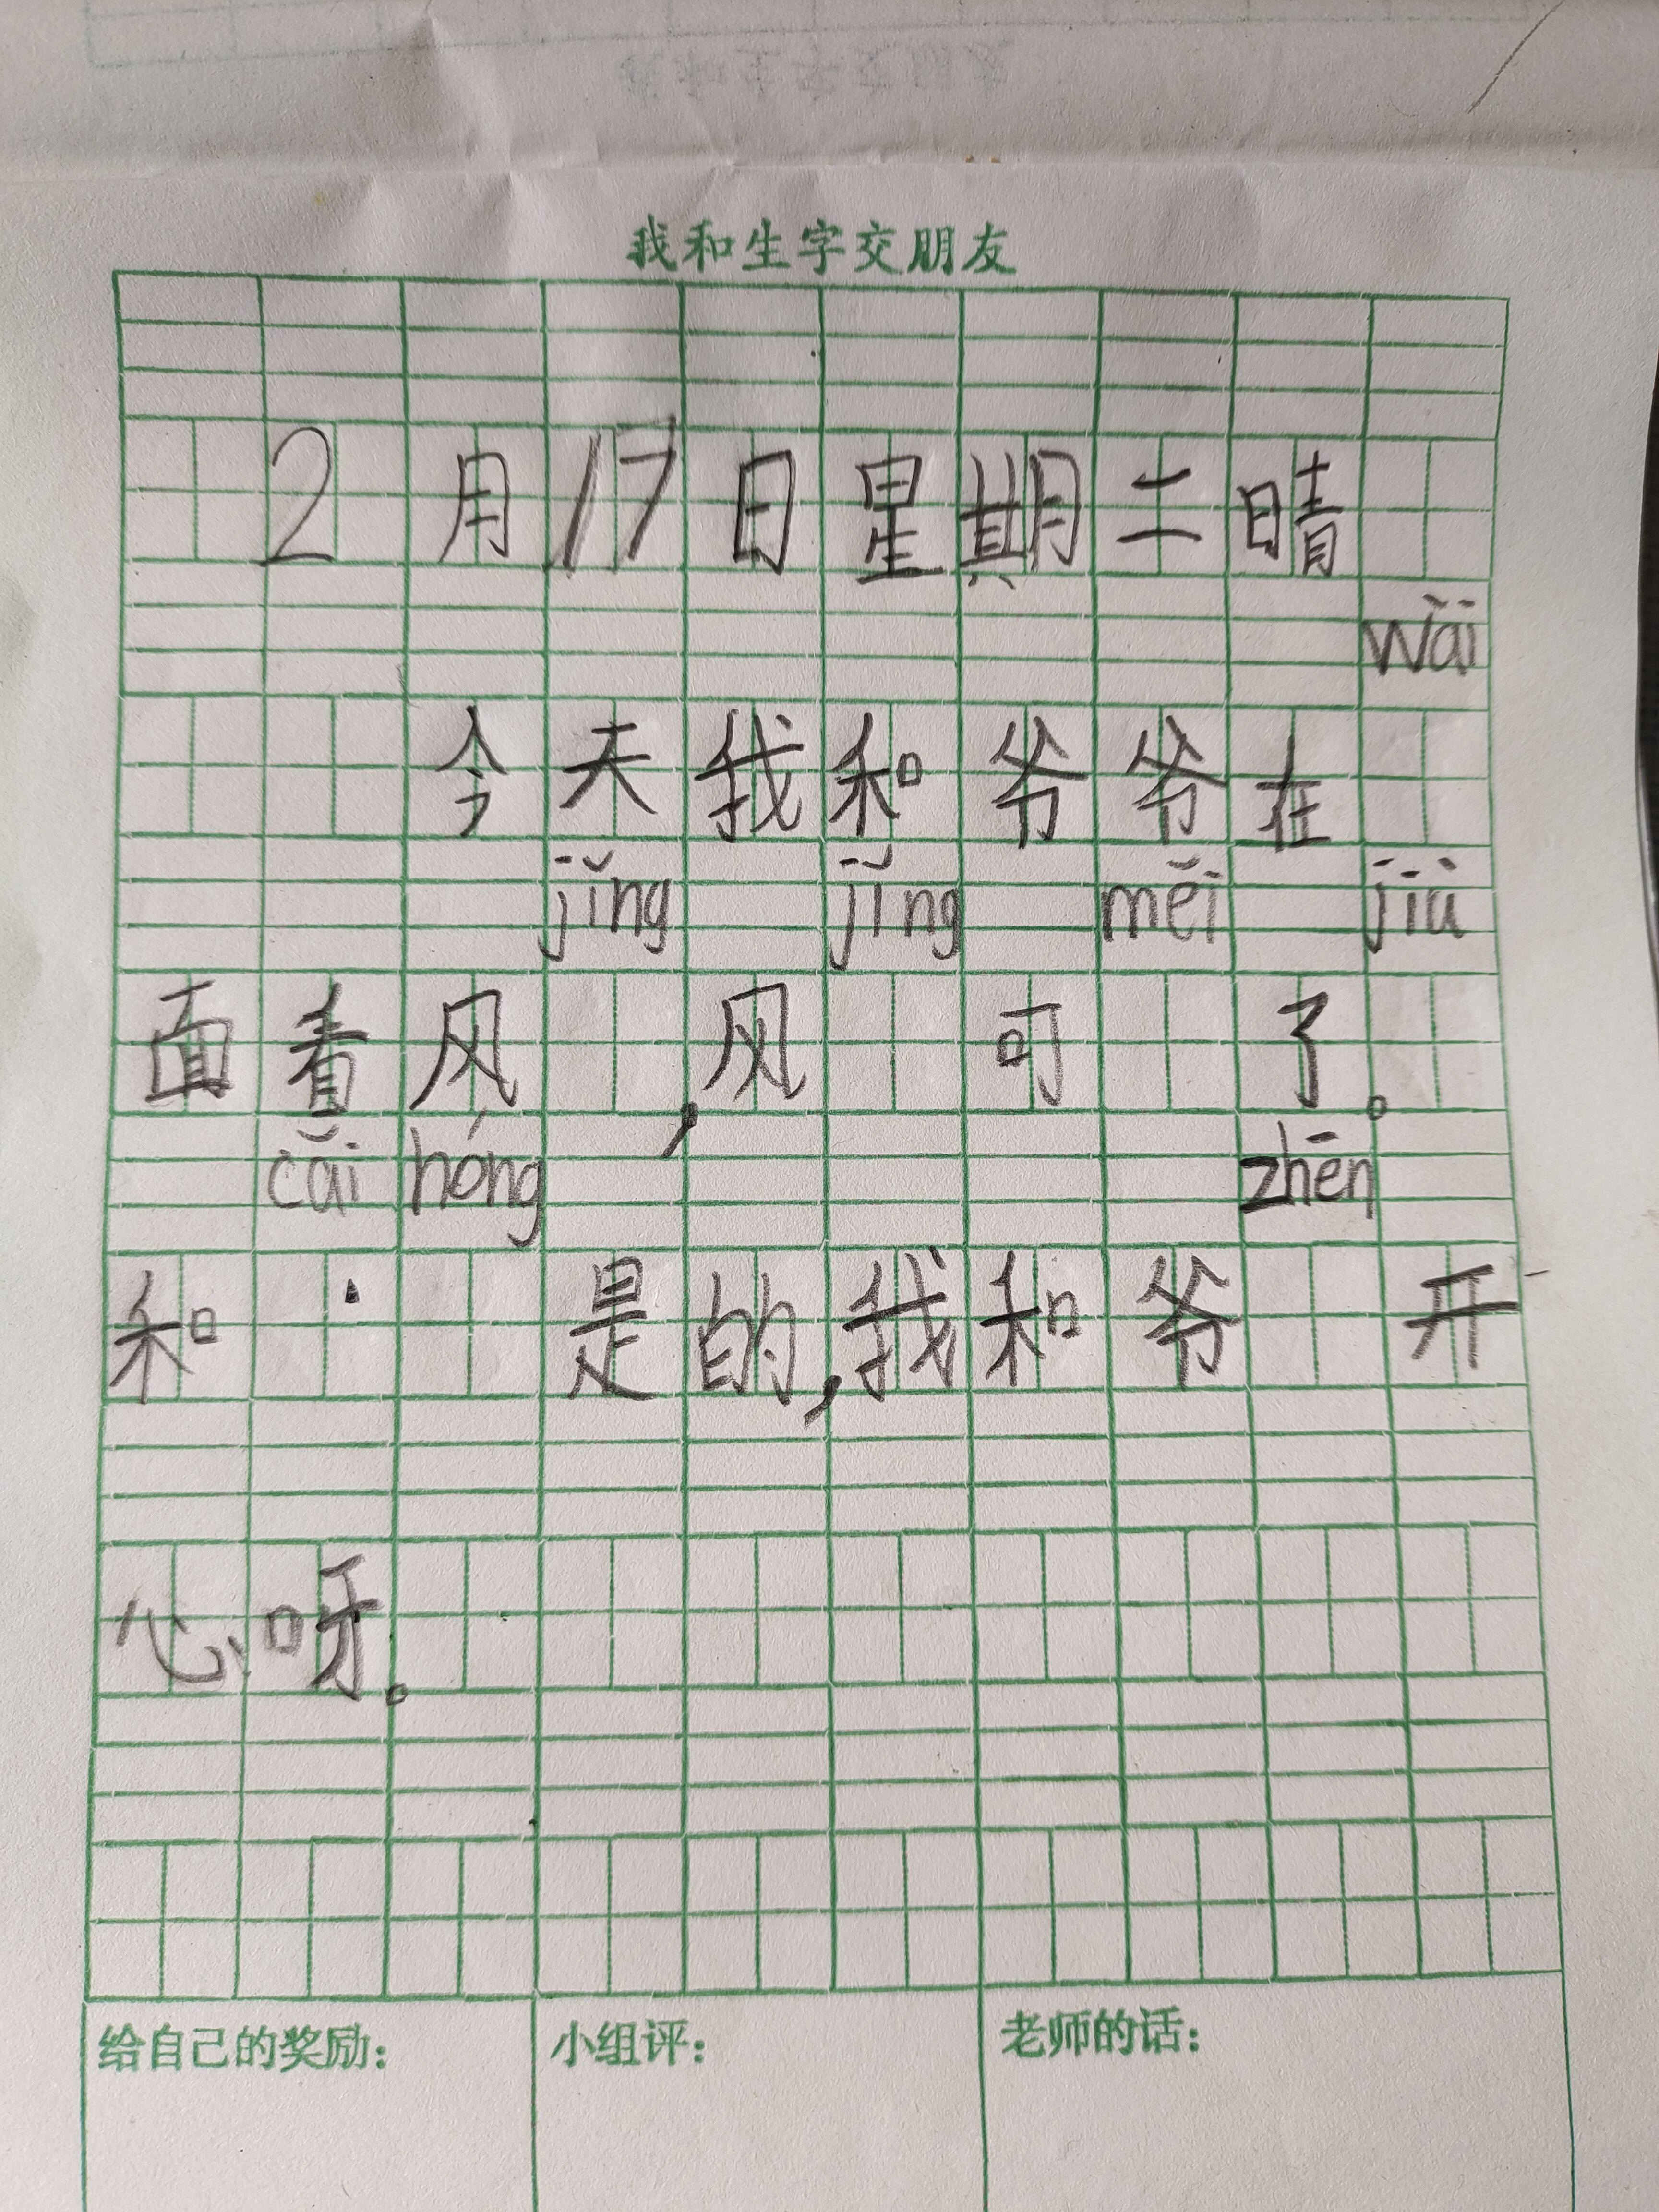 我和生字交朋友
2月17日星期二晴
wǎi
今天我和爷爷在
jǐng jǐng měi jiù
面看风，风可了。
cǎi hóng zhēn
和是的，我和爷开
心呀。
给自己的奖励： 小组评： 老师的话：